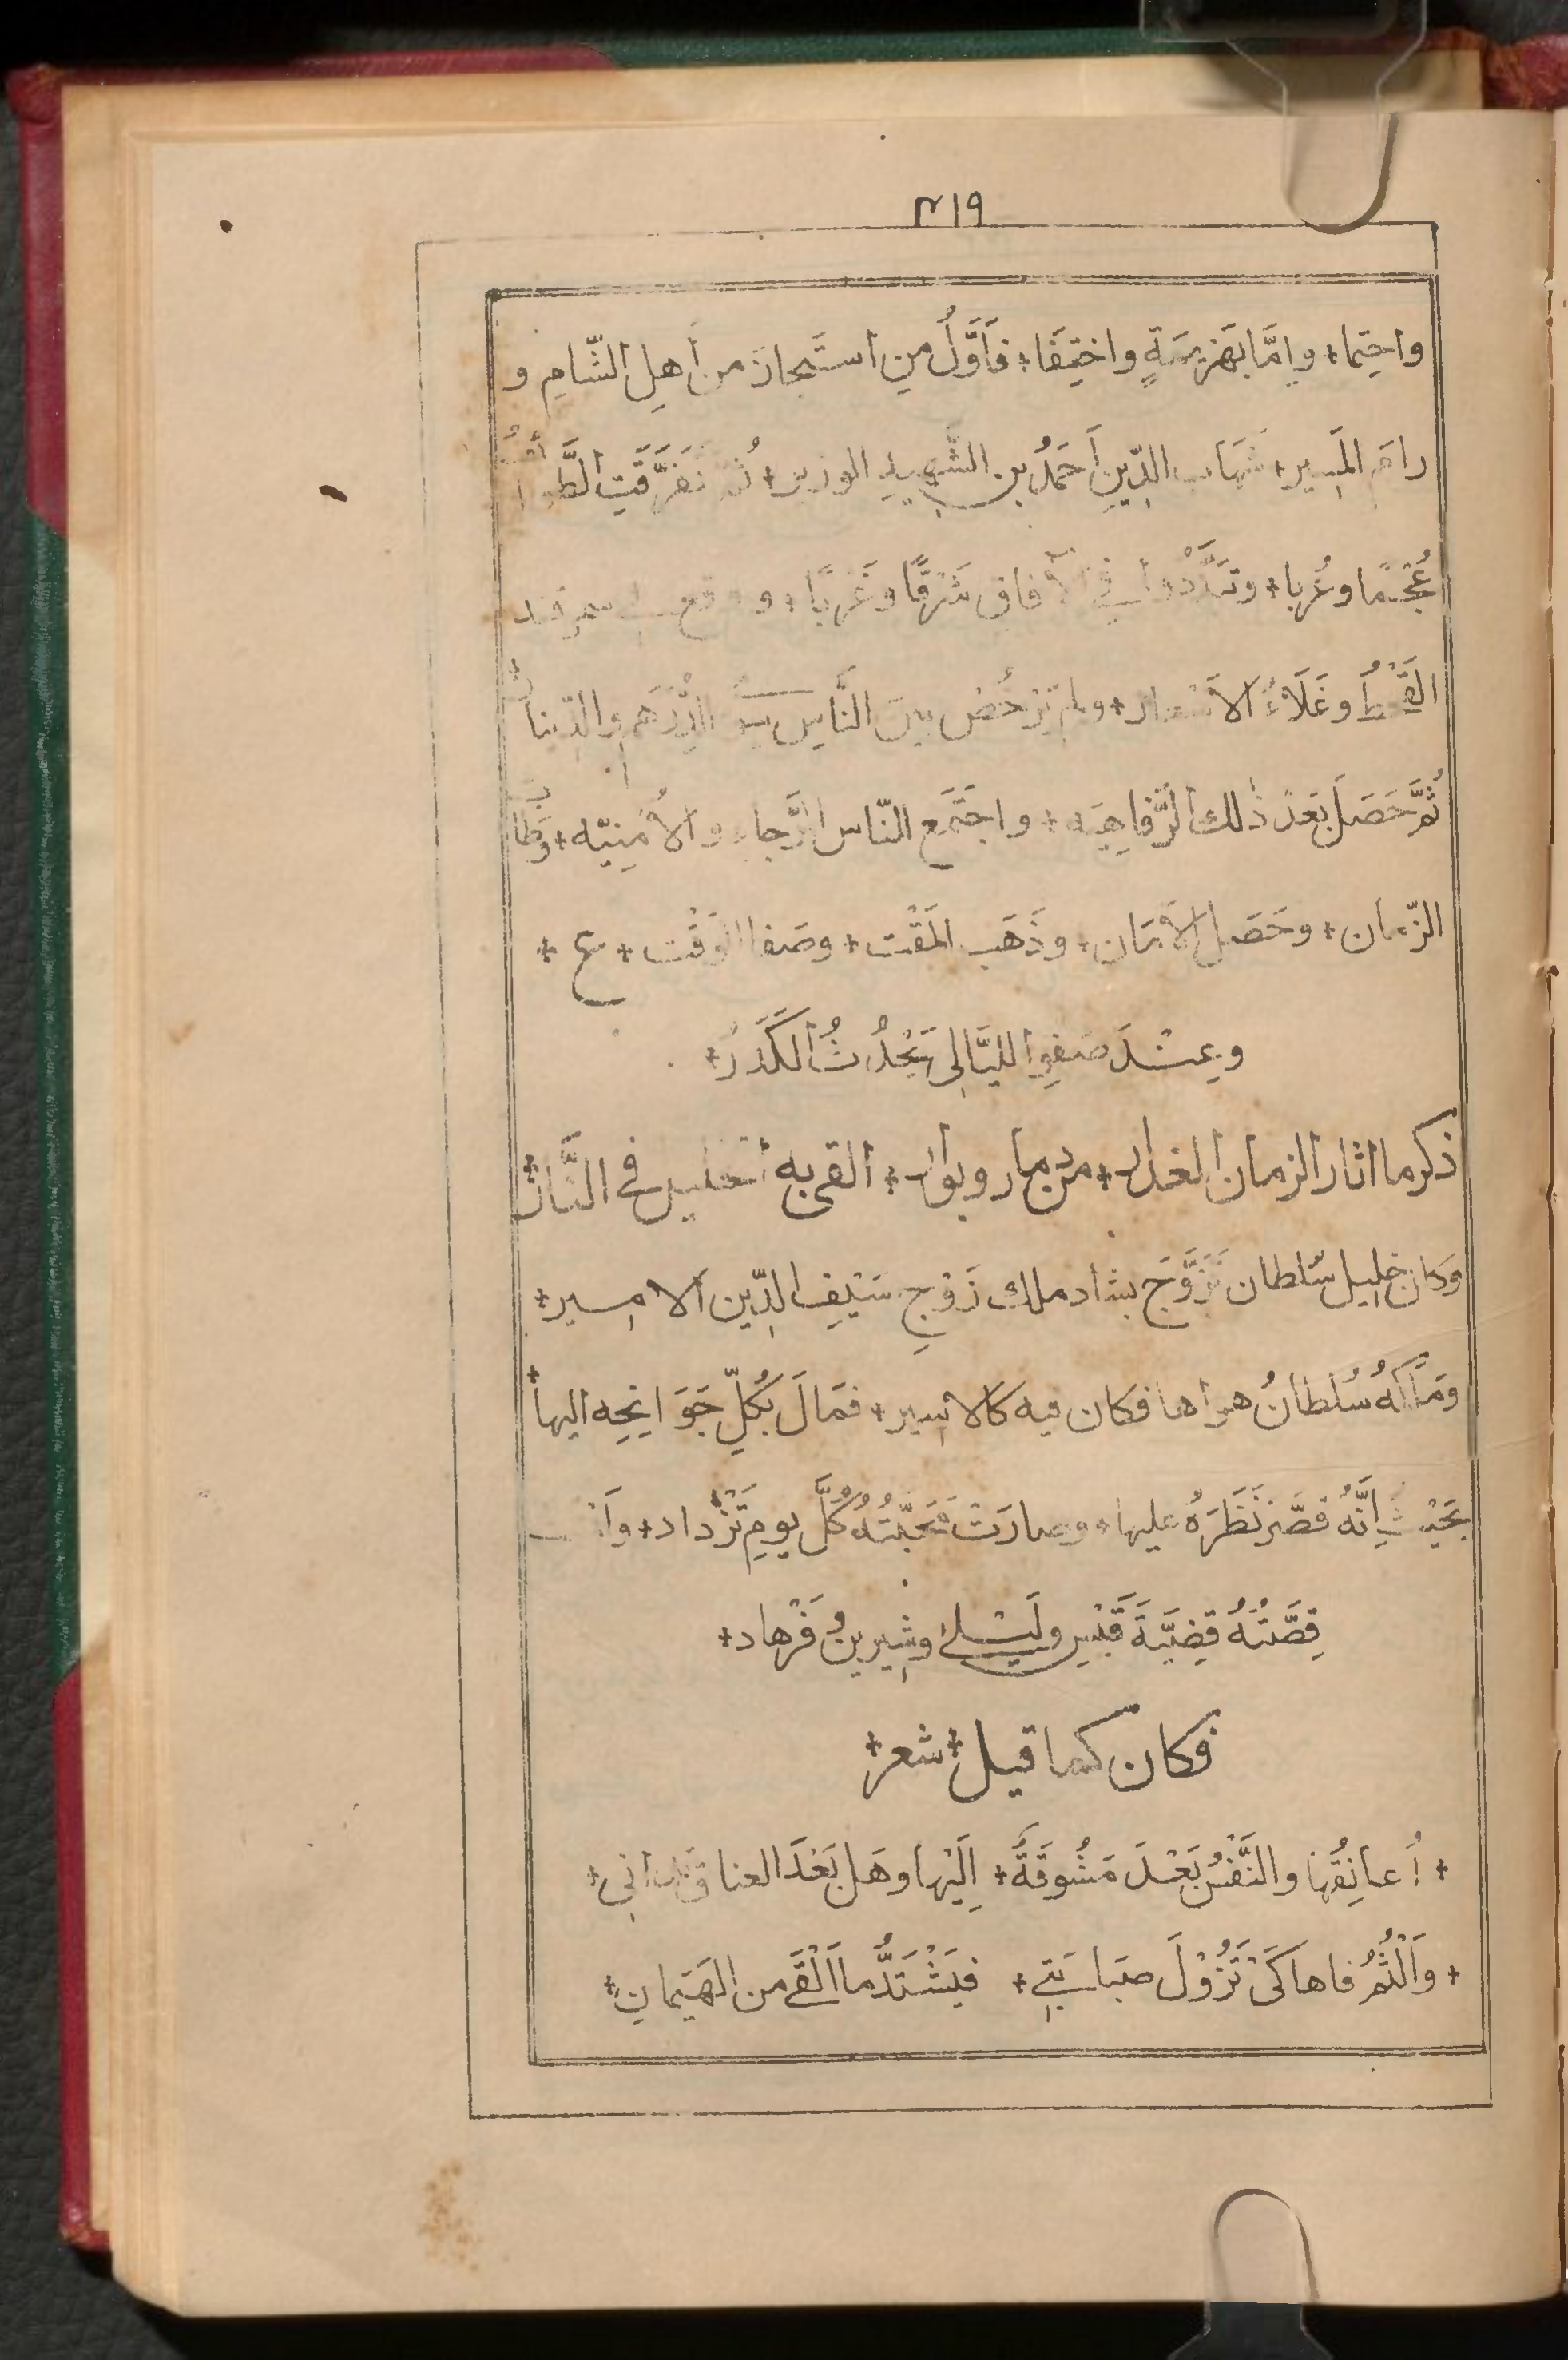 ٣١٩
واحتما + وإمّا بهَزيمَةٍ واختِفَا + فَأَوَّلُ مِن استَجازَ من أهلِ الشّامِ و
رامَ المَسير + شهَاب الدّينِ أحمَدُ بن الشّهيدِ الوزير + ثُمّ تفَرَّقَتِ الطَّوائفُ
عُجْمًا وعُربا + وتبَدَّدُوا في الآفاق شَرْقًا وغَرْبًا + ووقع بسمرقند
القَحْطُ وغَلَاءُ الاَسْعار + ولم يَرْخُصْ بين النَّاسِ سِوَى الدِّرْهَم والدّينار
ثُمَّ حَصَلَ بَعْدَ ذٰلك الرَّفاهِيَه + واجتَمَع النّاس الرَّجاء والأُمْنِيّه + وطَابَ
الزّمان + وحَصَل الاَمَان + وذَهَب المَقْت + وصَفا الوَقْت + ع +
وعِنْدَ صَفوِ اللّيَالِى يَحْدُثُ الكَدَرُ +
ذكر ما اثار الزمان الغدار + من دمار وبوار + القى به الخليل في النَّار +
وَكان خليل سُلطان تَزَوَّجَ بشاد ملك زَوْجِ سَيْفِ الدّين الامير +
ومَلَكَهُ سُلطانُ هواها فكان فيه كالاسير + فمَالَ بكُلِّ جَوَانِحِه اليها +
بحَيْثُ إِنَّهُ قصَّرَ نَظَرَهُ عليها + وصارَتْ مَحَبّتُهُ كُلَّ يومٍ تَزْداد + وأنْسَت
قِصَّتُهُ قضِيَّةَ قَيْسِ ولَيْلىٰ وشِيرينُ فَرْهاد +
فكان كما قيل + شعر +
+ أُعانِقُها والنَّفْسُ بَعْدَ مَشُوقَةٌ + إِلَيْها وهَل بَعْدَ العناقِ تَدانِي +
+ وأَلْثُمُ فاها كَىْ تَزُوْلَ صبَابَتي + فيَشْتَدُّ ما أَلْقَى من الهَيَمانِ +